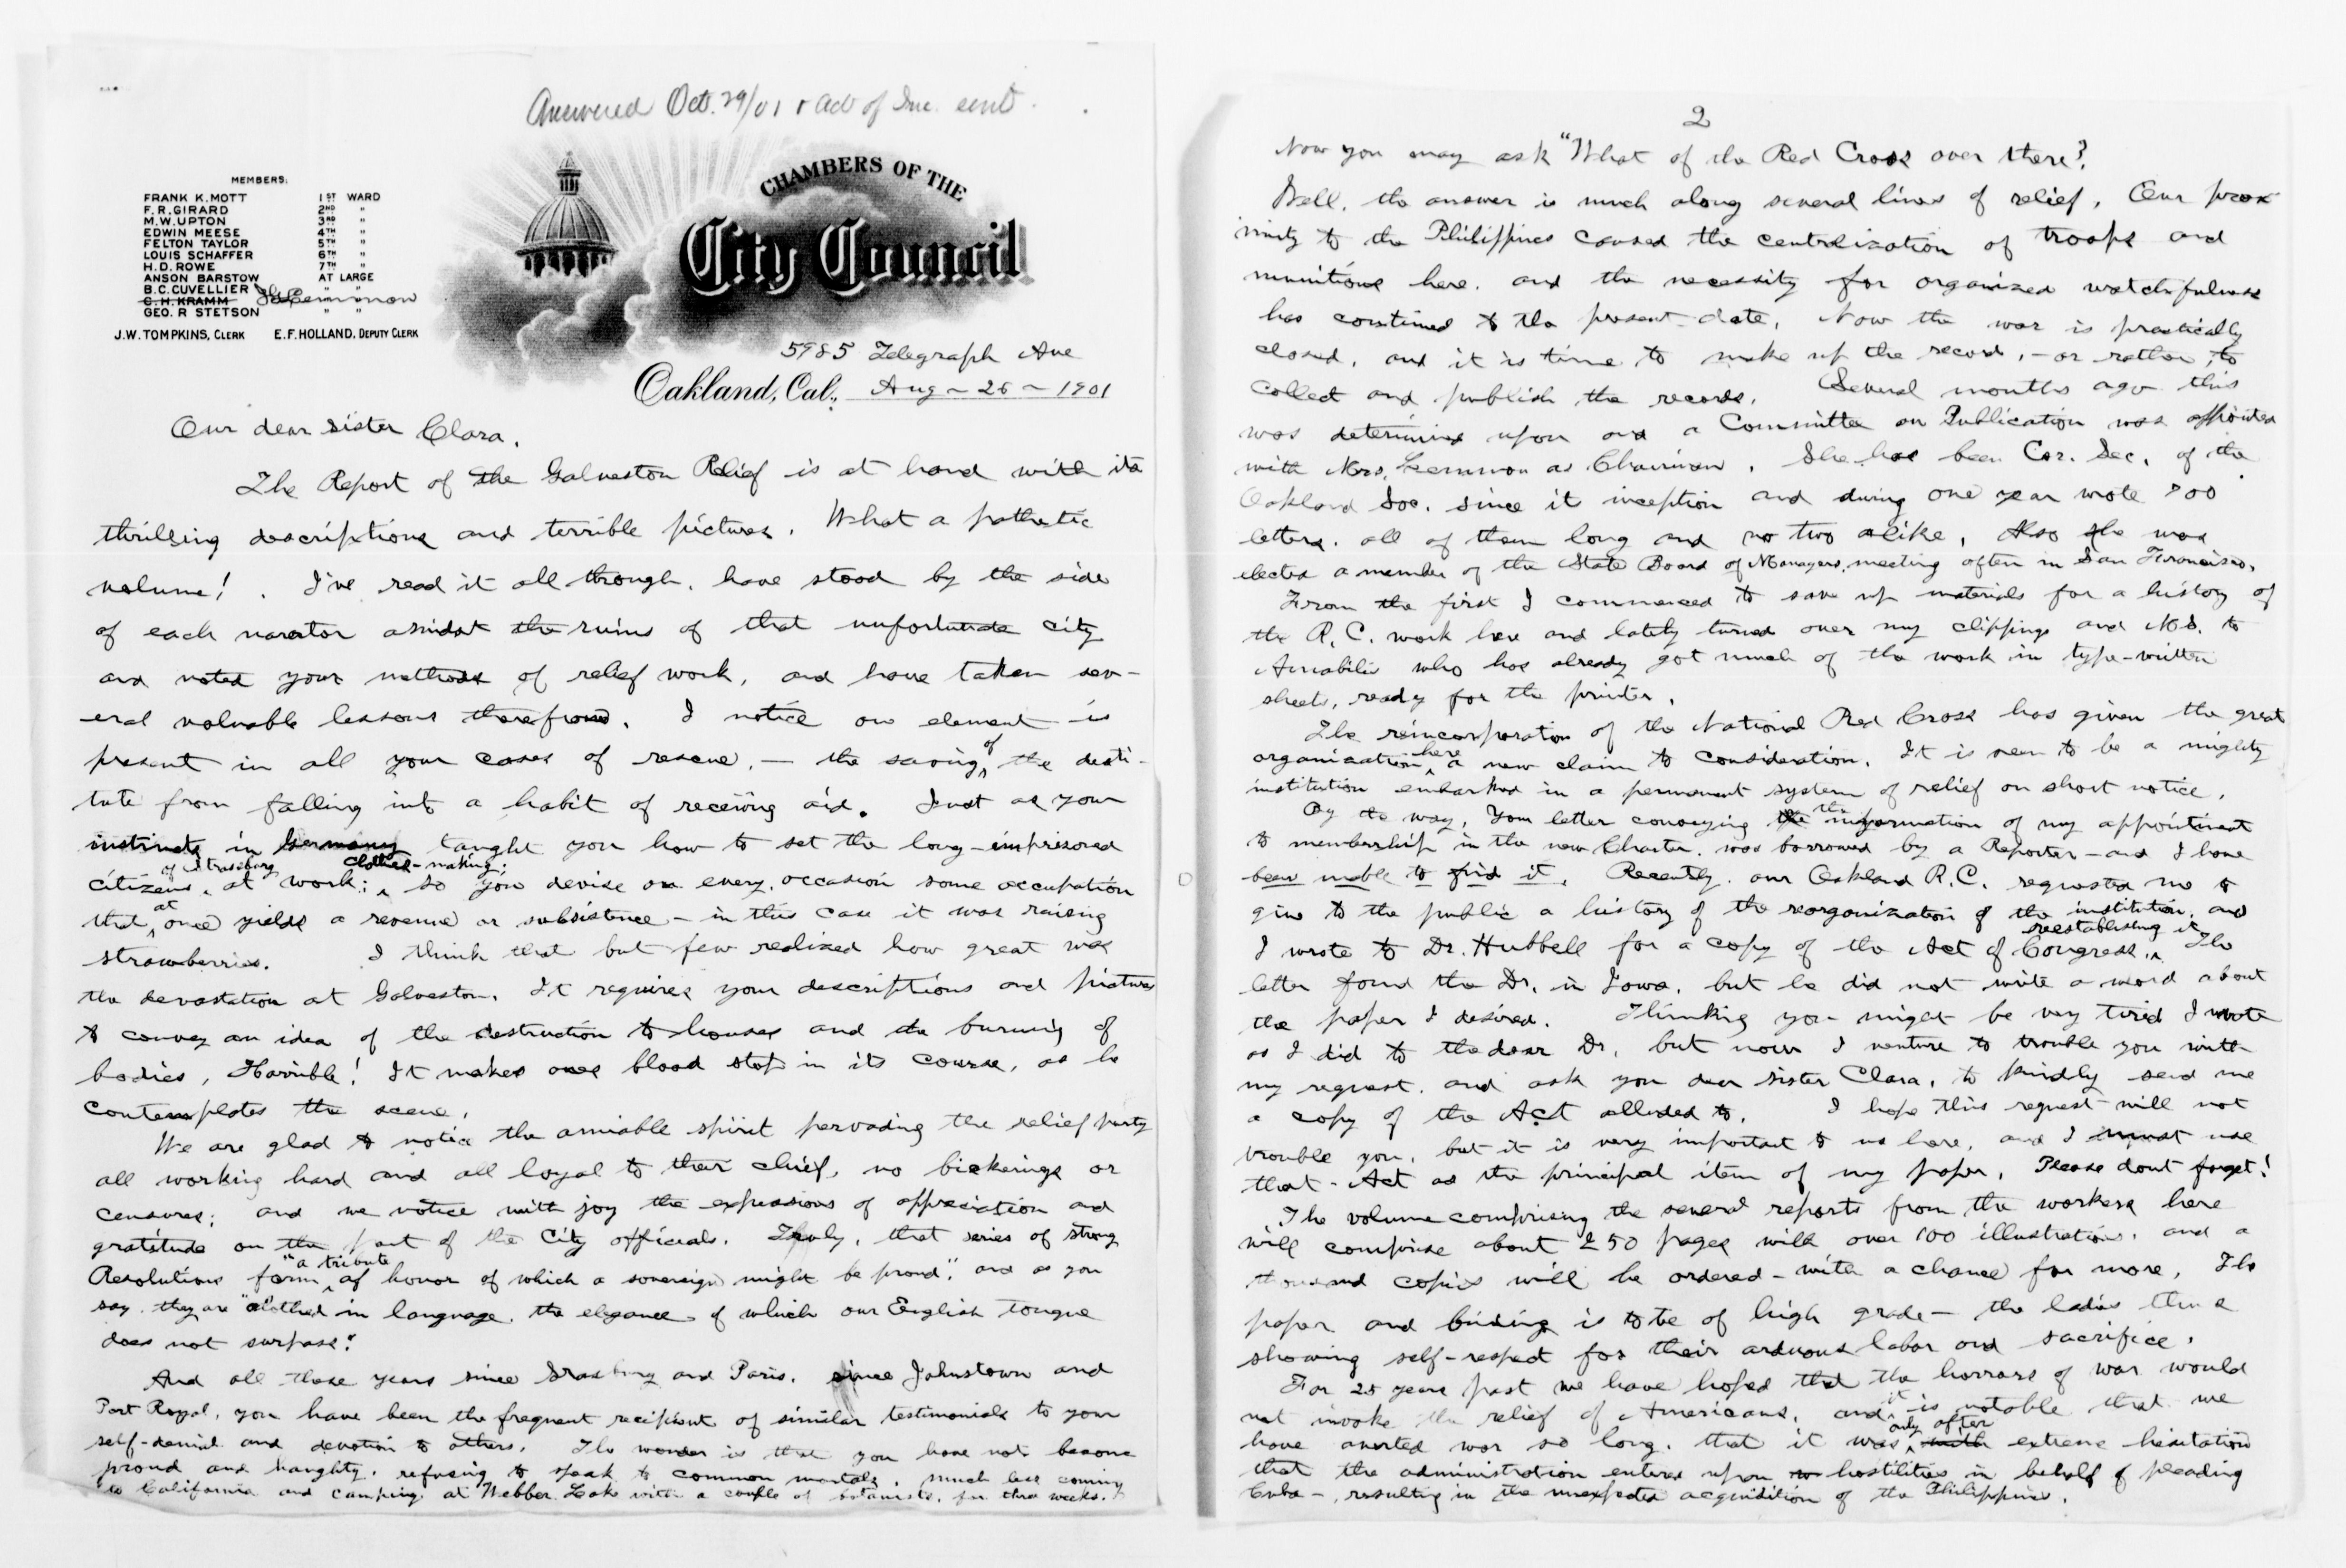 Answered Oct. 29/01 & Act of Inc. sent.
MEMBERS:
FRANK K. MOTT 1ST WARD
F. R. GIRARD 2ND "
M. W. UPTON 3RD "
EDWIN MEESE 4TH "
FELTON TAYLOR 5TH "
LOUIS SCHAFFER 6TH "
H. D. ROWE 7TH "
ANSON BARSTOW AT LARGE
B. C. CUVELLIER " "
C. H. KRAMM Lemmon " "
GEO. R STETSON " "
J. W. TOMPKINS, CLERK E. F. HOLLAND, DEPUTY CLERK
CHAMBERS OF THE
City Council
5985 Telegraph Ave
Oakland, Cal., Aug ~ 26 ~ 1901
Our dear sister Clara.
The Report of the Galveston Relief is at hand with its
thrilling descriptions and terrible pictures. What a pathetic
volume! I've read it all through, have stood by the side
of each narrator amidst the ruins of that unfortunate city
and noted your methods of relief work, and have taken sev-
eral valuable lessons therefrom. I notice one element is
present in all your cases of rescue, — the saving of the desti-
tute from falling into a habit of receiving aid. Just as your
instincts in Germany taught you how to set the long-imprisoned
citizens of Strasburg at work; clothes-making; so you devise on every occasion some occupation
that at once yields a revenue or subsistence — in this case it was raising
strawberries. I think that but few realized how great was
the devastation at Galveston. It requires your descriptions and pictures
to convey an idea of the destruction to houses and the burning of
bodies, Horrible! It makes ones blood stop in its course, as he
contemplates the scene.
We are glad to notice the amiable spirit pervading the relief party
all working hard and all loyal to their chief, no bickerings or
censures; and we notice with joy the expressions of appreciation and
gratitude on the part of the City officials. Truly, that series of strong
Resolutions form "a tribute of honor of which a sovereign might be proud", and as you
say, they are "clothed in language, the elegance of which our English tongue
does not surpass".
And all these years since Strasburg and Paris, since Johnstown and
Port Royal, you have been the frequent recipient of similar testimonials to your
self-denial and devotion to others. The wonder is that you have not become
proud and haughty, refusing to speak to common mortals, much less coming
to California and camping at Webber Lake with a couple of botanists, for three weeks!
2
Now you may ask "What of the Red Cross over there?
Well, the answer is much along several lines of relief. Our prox-
imity to the Philippines caused the centralization of troops and
munitions here, and the necessity for organized watchfulness
has continued to the present date. Now the war is practically
closed, and it is time to make up the record, — or rather, to
collect and publish the records. Several months ago this
was determined upon and a Committee on Publication was appointed
with Mrs. Lemmon as Chairman. She has been Cor. Sec. of the
Oakland Soc. since it inception and during one year wrote 700
letters, all of them long and no two alike. Also she was
elected a member of the State Board of Managers, meeting often in San Francisco.
From the first I commenced to save up materials for a history of
the R. C. work here and lately turned over my clippings and MS. to
Amabilis who has already got much of the work in type-written
sheets, ready for the printer.
The reincorporation of the National Red Cross has given the great
organization here a new claim to consideration. It is seen to be a mighty
institution embarked in a permanent system of relief on short notice.
By the way, Your letter conveying the information of my appointment
to membership in the new Charter, was borrowed by a Reporter — and I have
been unable to find it. Recently, our Oakland R. C. requested me to
give to the public a history of the reorganization of the institution, and
I wrote to Dr. Hubbell for a copy of the Act of Congress reestablishing it. The
letter found the Dr. in Iowa, but he did not write a word about
the paper I desired. Thinking you might be very tired I wrote
as I did to the dear Dr. but now I venture to trouble you with
my request, and ask you dear sister Clara, to kindly send me
a copy of the Act alluded to. I hope this request will not
trouble you, but it is very important to us here, and I must use
that Act as the principal item of my paper. Please dont forget!
The volume comprising the several reports from the workers here
will comprise about 250 pages with over 100 illustrations, and a
thousand copies will be ordered — with a chance for more. The
paper and binding is to be of high grade — the ladies thus
showing self-respect for their arduous labor and sacrifice.
For 25 years past we have hoped that the horrors of war would
not invoke the relief of Americans, and it is notable that we
have averted war so long, that it was only after with extreme hesitation
that the administration entered upon hostilities in behalf of pleading
Cuba —, resulting in the unexpected acquisition of the Philippines.